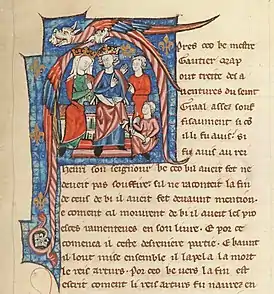 pres ceo be mestre
Gautier map
out treite des a
uentures du seint
Graal asses souf
fisaument si cõ
il li fu auis. Si
fu auis au rei
henri son seignour be ceo bil aueit fet ne
deueit pas souffire. sil ne raconteit la fin
de ceus de bi il aueit fet deuaunt mention.
e coment il morurent de bi il aueit les pro
esces ramenteues en son liure. E por ce
comenca il ceste derreniere partie. E baunt
il lout mise ensemble il lapela la mort
le reis artur. Por ceo be uers la fin est
escrit coment li reis artur fu naurez en